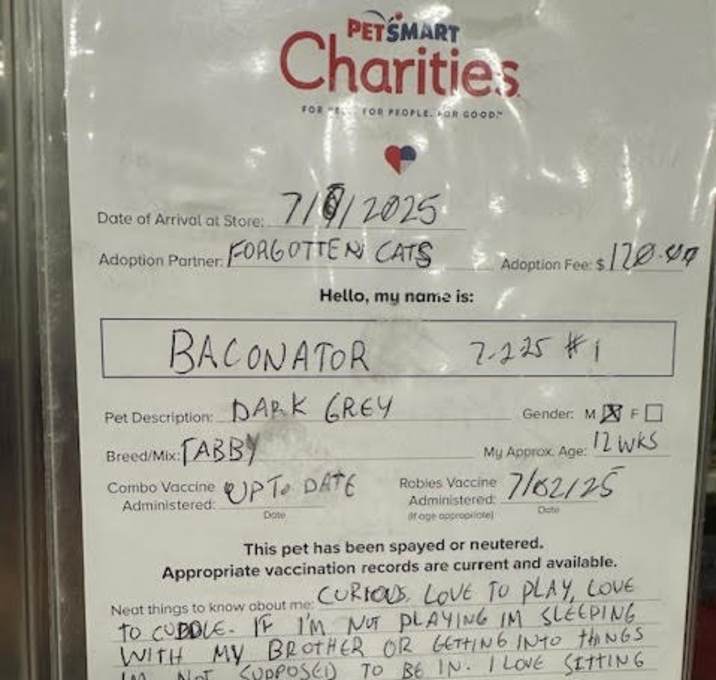 PETSMART
Charities
FOR PEOPLE. FOR GOOD.™
Date of Arrival at Store: 7/8/2025
Adoption Partner: FORGOTTEN CATS Adoption Fee: $
Hello, my name is:
BACONATOR 7-225 #1
Pet Description: DARK GREY Gender: M ☒ F ☐
Breed/Mix: TABBY My Approx. Age: 12 WKS
Combo Vaccine Administered: UP To DATE Rabies Vaccine Administered: 7/02/25
Date (if age appropriate) Date
This pet has been spayed or neutered.
Appropriate vaccination records are current and available.
Neat things to know about me: CURIOUS. LOVE TO PLAY, LOVE
TO CUDDLE. IF I'M NOT PLAYING IM SLEEPING
WITH MY BROTHER OR GETTING INTO THINGS
IM NOT SUPPOSED TO BE IN. I LOVE SITTING